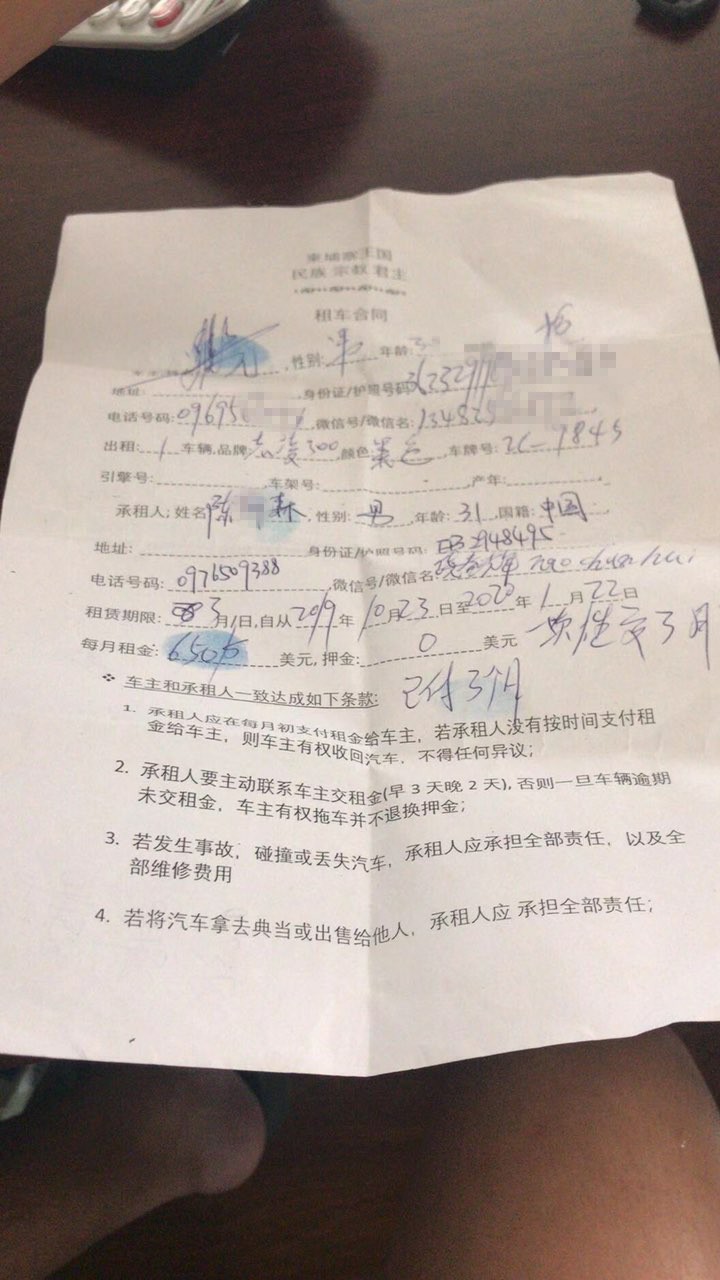 柬埔寨王国
民族 宗教 君主
租车合同
性别: 男 年龄:
地址: 身份证/护照号码
电话号码: 09695 微信号/微信名: 134825
出租: 1 车辆,品牌: 300 颜色 黑色 车牌号: 2L-1845
引擎号: 车架号: 产年:
承租人; 姓名 陈 林, 性别: 男 年龄: 31 国籍: 中国
地址: 身份证/护照号码: 2948495
电话号码: 0976509388 微信号/微信名
租赁期限: 3月/1日,自从2019年10月23日至2020年1月22日
每月租金: 650 美元, 押金: 0 美元 一次性交3月
已付3个月
❖ 车主和承租人一致达成如下条款:
1. 承租人应在每月初支付租金给车主，若承租人没有按时间支付租
金给车主，则车主有权收回汽车，不得任何异议；
2. 承租人要主动联系车主交租金(早 3 天晚 2 天), 否则一旦车辆逾期
未交租金，车主有权拖车并不退换押金；
3. 若发生事故，碰撞或丢失汽车，承租人应承担全部责任，以及全
部维修费用
4. 若将汽车拿去典当或出售给他人，承租人应 承担全部责任；